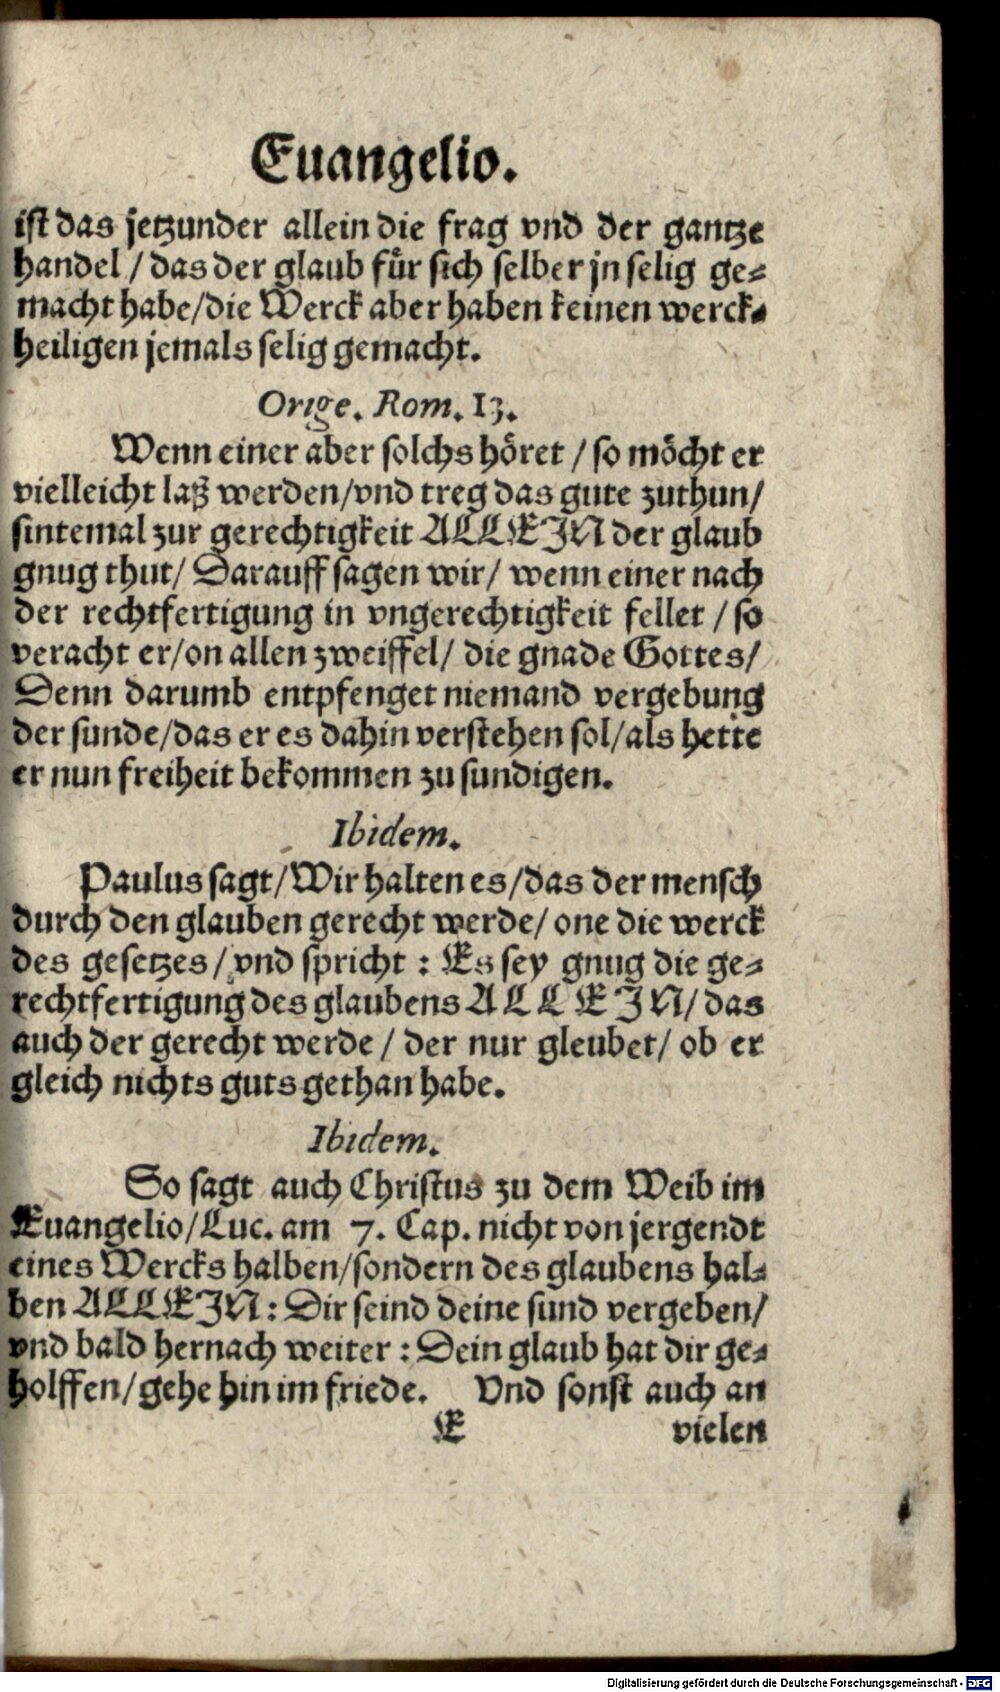 Euangelio.
ist das jetzunder allein die frag vnd der gantze
handel / das der glaub für sich selber jn selig ge⸗
macht habe/die Werck aber haben keinen werck⸗
heiligen jemals selig gemacht.
Orige. Rom. 13.
Wenn einer aber solchs höret / so möcht er
vielleicht laß werden/vnd treg das gute zuthun/
sintemal zur gerechtigkeit ALLEIN der glaub
gnug thut/ Darauff sagen wir/ wenn einer nach
der rechtfertigung in vngerechtigkeit fellet / so
veracht er/on allen zweiffel/ die gnade Gottes/
Denn darumb entpfenget niemand vergebung
der sunde/das er es dahin verstehen sol/als hette
er nun freiheit bekommen zu sundigen.
Ibidem.
Paulus sagt/Wir halten es/das der mensch
durch den glauben gerecht werde/ one die werck
des gesetzes/ vnd spricht : Es sey gnug die ge⸗
rechtfertigung des glaubens ALLEIN/ das
auch der gerecht werde / der nur gleubet/ ob er
gleich nichts guts gethan habe.
Ibidem.
So sagt auch Christus zu dem Weib im
Euangelio/Luc. am 7. Cap. nicht von jergendt
eines Wercks halben/sondern des glaubens hal⸗
ben ALLEIN : Dir seind deine sund vergeben/
vnd bald hernach weiter : Dein glaub hat dir ge⸗
holffen/gehe hin im friede. Vnd sonst auch an
E vielen
Digitalisierung gefördert durch die Deutsche Forschungsgemeinschaft - DFG